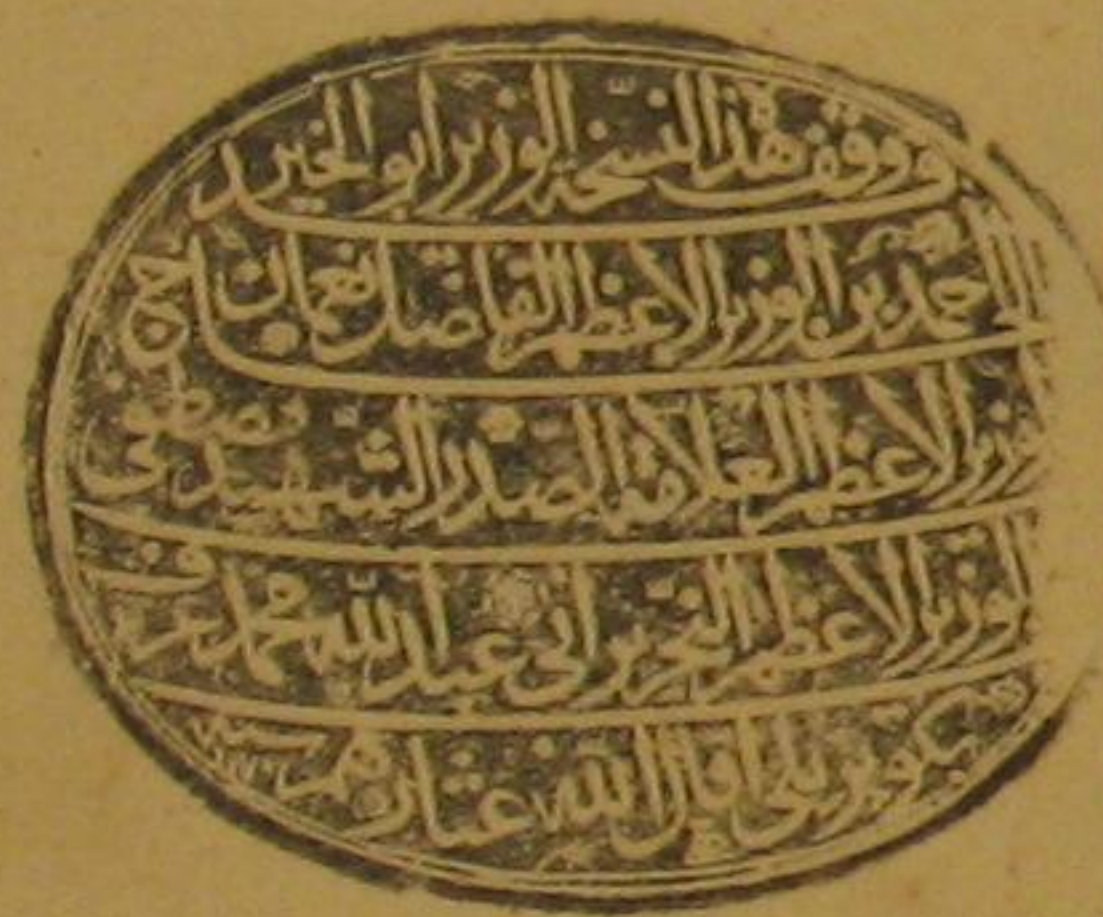 و وقف هذا النسخة الوزير ابو الخير
احمد بن الوزير الاعظم الفاضل نعمان
الوزير الاعظم العلامة الصدر الشهيد مصطفى
الوزير الاعظم النحرير ابي عبد الله محمد عرف
بكوپريلى اقال الله عثارهم